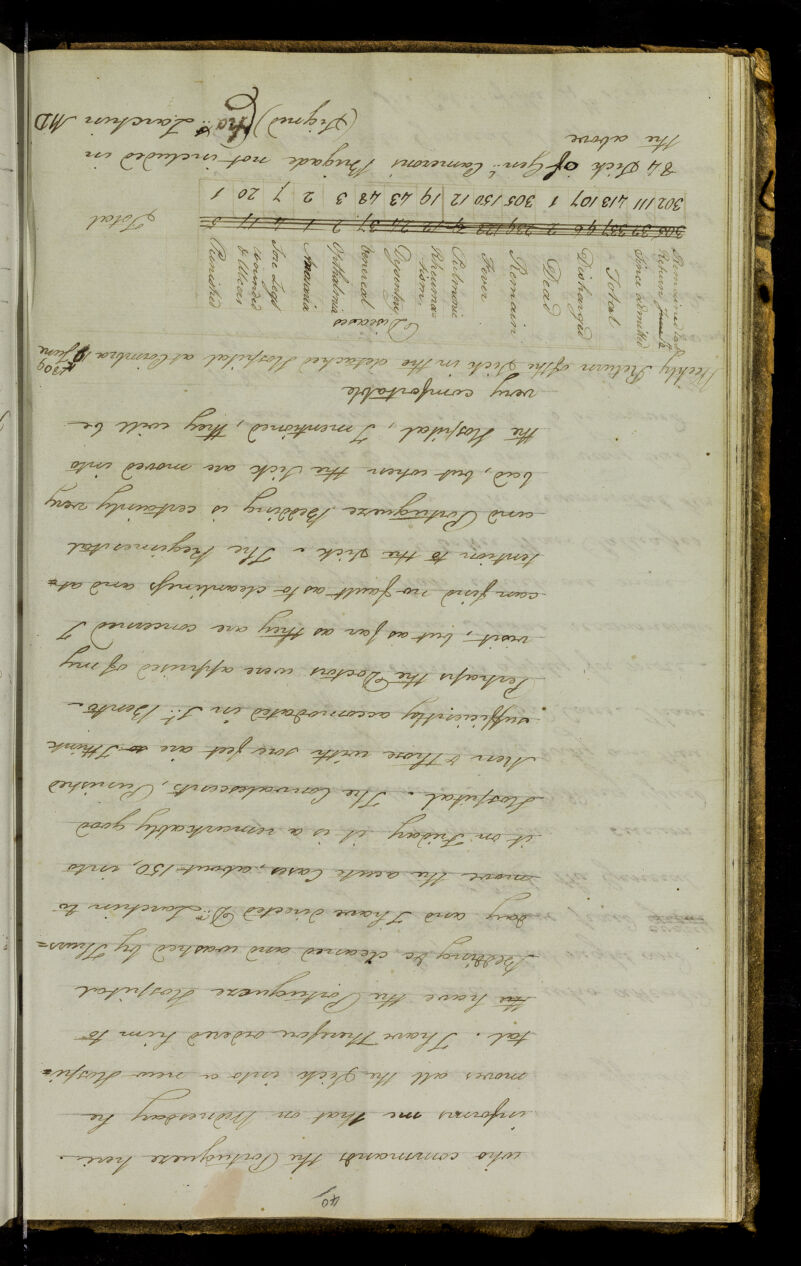 40
who commands the Portuguese here.
informs me that on Wednesday he
moves all the Sick into a new Hospi=
tal. I have therefore ordered him to
the have the Portuguese Hospital
Bedding be cleaned and washed by Thurs=
day and I have directed Dr. Larchin to
move the acute Cases, about 150, into
it on Friday it is a remarkably good
Hospital. The Convalescents, Punished
Men & those with sore feet are so I think
sufficiently accomodated in St. Bento.
Perhaps the Doctors were apprised of my
visit, but as far as they are concerned I
can find no fault as to cleanliness and at=
tention to the sick. The Regimental
and Portuguese Bedding is certainly very
bad, but when the Sick are moved into
the Hospital, I mentioned, they will be
very comfortable
Weekly Return of the Sick in the detached Hospital at Coimbra June 1809
Diseases
Remained last Return
Since admitted
Total
Discharged
Dead
Remain
Fever
Pulmonic
Rheumatisms
Dysentery
Venereal
Ophthalmia
Anasarca
Sore Legs
wounded
& Ulcers
Punished
Total
302 111 413 107 1 305 150 12 19 43 48 3 2 7 20 1
84 Sick of Genl. Camerons Brigade not included in
the above
(Signed) Larchin MD